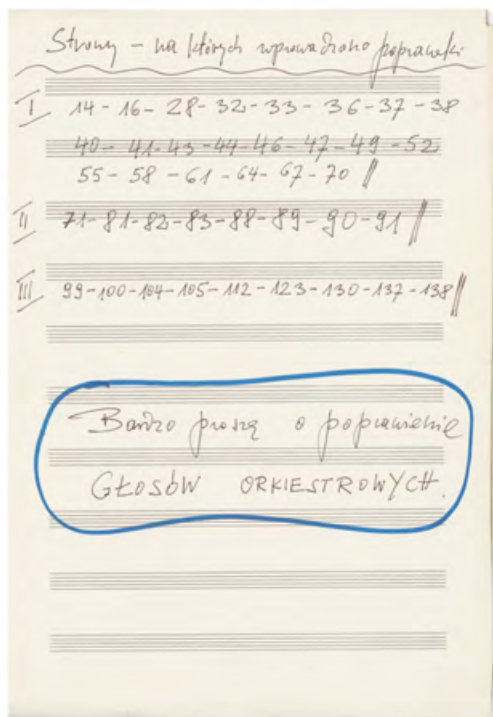 Strony - na których wprowadzono poprawki
I 14 - 16 - 28 - 32 - 33 - 36 - 37 - 38
40 - 41 - 43 - 44 - 46 - 47 - 49 - 52
55 - 58 - 61 - 64 - 67 - 70 //
II 71 - 81 - 82 - 83 - 88 - 89 - 90 - 91 //
III 99 - 100 - 104 - 105 - 112 - 123 - 130 - 137 - 138 //
Bardzo proszę o poprawienie
GŁOSÓW ORKIESTROWYCH.